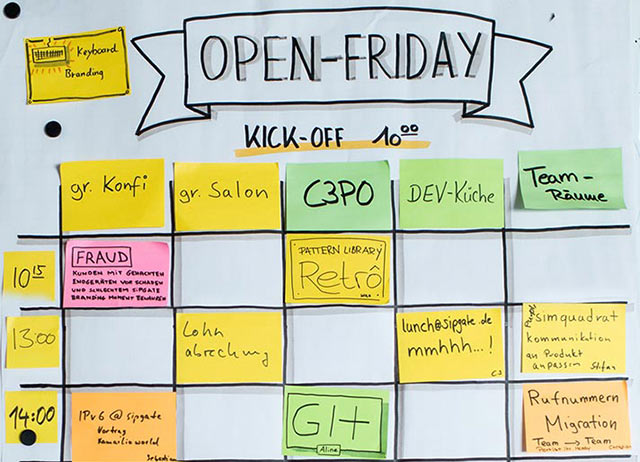 Keyboard
Branding
OPEN-FRIDAY
KICK-OFF 10⁰⁰
gr. Konfi
gr. Salon
C3PO
DEV-Küche
Team-
Räume
10¹⁵
FRAUD
KUNDEN MIT GEHACKTEN
ENDGERÄTEN VOR SCHADEN
UND SCHLECHTEM SIPGATE
BRANDING MOMENT BEWAHREN
PATTERN LIBRARY
Retrô
13:00
Lohn
abrechung
lunch@sipgate.de
mmhhh...!
simquadrat
kommunikation
an Produkt
anpassen
Stefan
14:00
IPv6 @ sipgate
Vortrag
Kamailioworld
Sebastian
GIt
Aline
Rufnummern
Migration
Team → Team